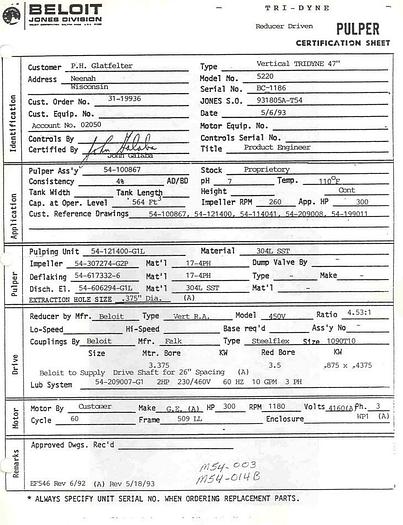 BELOIT
JONES DIVISION
TRI-DYNE
Reducer Driven PULPER
CERTIFICATION SHEET
Identification
Customer P.H. Glatfelter Type Vertical TRIDYNE 47"
Address Neenah Model No. 5220
Wisconsin Serial No. BC-1186
Cust. Order No. 31-19936 JONES S.O. 931805A-T54
Cust. Equip. No. Date 5/6/93
Account No. 02050 Motor Equip. No.
Controls By Controls Serial No.
Certified By John Galaba Title Product Engineer
John Galaba
Application
Pulper Ass'y 54-100867 Stock Proprietory
Consistency 4% AD/BD pH 7 Temp. 110°F
Tank Width Tank Length Height Cont
Cap. at Oper. Level 564 Ft³ Impeller RPM 260 App. HP 300
Cust. Reference Drawings 54-100867, 54-121400, 54-114041, 54-209008, 54-199011
Pulper
Pulping Unit 54-121400-G1L Material 304L SST
Impeller 54-307274-G2P Mat'l 17-4PH Dump Valve By -
Deflaking 54-617332-6 Mat'l 17-4PH Type - Make -
Disch. El. 54-606294-G1L Mat'l 304L SST Mat'l -
EXTRACTION HOLE SIZE .375" Dia. (A)
Drive
Reducer by Mfr. Beloit Type Vert R.A. Model 450V Ratio 4.53:1
Lo-Speed Hi-Speed Base req'd Ass'y No -
Couplings By Beloit Mfr. Falk Type Steelflex Size 1090T10
Size Mtr. Bore KW Red Bore KW
3.375 3.5 .875 x .4375
Beloit to Supply Drive Shaft for 26" Spacing (A)
Lub System 54-209007-G1 2HP 230/460V 60 HZ 10 GPM 3 PH
Motor
Motor By Customer Make G.E. (A) HP 300 RPM 1180 Volts 4160(A) Ph. 3
Cycle 60 Frame 509 LL Enclosure WP1 (A)
Remarks
Approved Dwgs. Rec'd
M54-003
M54-014B
EF546 Rev 6/92 (A) Rev 5/18/93
* ALWAYS SPECIFY UNIT SERIAL NO. WHEN ORDERING REPLACEMENT PARTS.